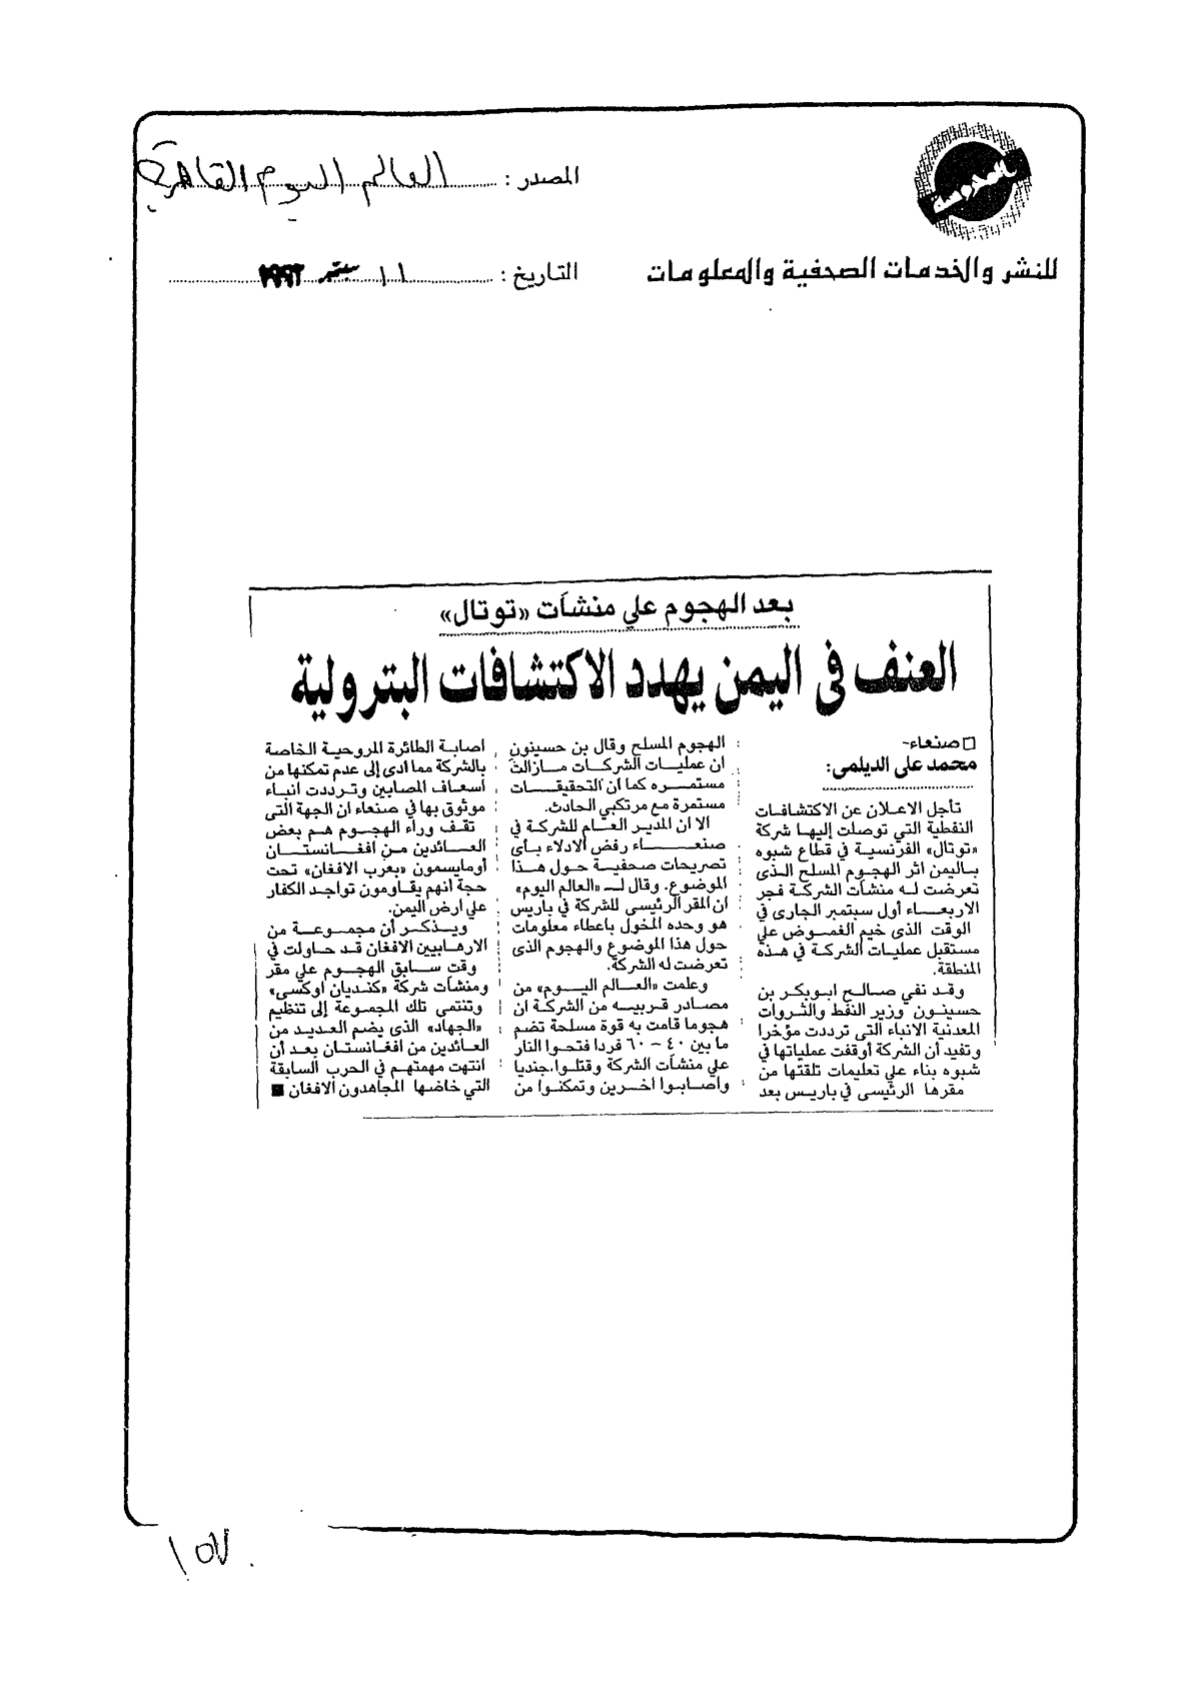 المصدر : العالم اليوم القاهرية
للنشر والخدمات الصحفية والمعلومات
التاريخ : ١١ سبتمبر ١٩٩٣
بعد الهجوم علي منشآت «توتال»
العنف فى اليمن يهدد الاكتشافات البترولية
□ صنعاء-
محمد على الديلمى:
تأجل الاعلان عن الاكتشافات
النفطية التي توصلت إليها شركة
«توتال» الفرنسية في قطاع شبوه
باليمن اثر الهجوم المسلح الذى
تعرضت له منشآت الشركة فجر
الاربعاء أول سبتمبر الجارى في
الوقت الذى خيم الغموض علي
مستقبل عمليات الشركة في هذه
المنطقة.
وقد نفي صالح ابوبكر بن
حسينون وزير النفط والثروات
المعدنية الانباء التى ترددت مؤخرا
وتفيد أن الشركة أوقفت عملياتها في
شبوه بناء علي تعليمات تلقتها من
مقرها الرئيسى في باريس بعد
الهجوم المسلح وقال بن حسينون
ان عمليات الشركات مازالت
مستمره كما ان التحقيقات
مستمرة مع مرتكبي الحادث.
الا ان المدير العام للشركة في
صنعاء رفض الادلاء بأى
تصريحات صحفية حول هذا
الموضوع. وقال لـ «العالم اليوم»
ان المقر الرئيسى للشركة في باريس
هو وحده المخول باعطاء معلومات
حول هذا الموضوع والهجوم الذى
تعرضت له الشركة.
وعلمت «العالم اليوم» من
مصادر قريبه من الشركة ان
هجوما قامت به قوة مسلحة تضم
ما بين ٤٠ - ٦٠ فردا فتحوا النار
علي منشآت الشركة وقتلوا جنديا
واصابوا اخرين وتمكنوا من
اصابة الطائرة المروحية الخاصة
بالشركة مما أدى إلى عدم تمكنها من
اسعاف المصابين وترددت انباء
موثوق بها في صنعاء ان الجهة التى
تقف وراء الهجوم هم بعض
العائدين من افغانستان
أومايسمون «بعرب الافغان» تحت
حجة انهم يقاومون تواجد الكفار
علي ارض اليمن.
ويذكر أن مجموعة من
الارهابيين الافغان قد حاولت في
وقت سابق الهجوم علي مقر
ومنشآت شركة «كنديان اوكسى»
وتنتمى تلك المجموعة إلى تنظيم
«الجهاد» الذى يضم العديد من
العائدين من افغانستان بعد أن
انتهت مهمتهم في الحرب السابقة
التي خاضها المجاهدون الافغان ■
١٥٧